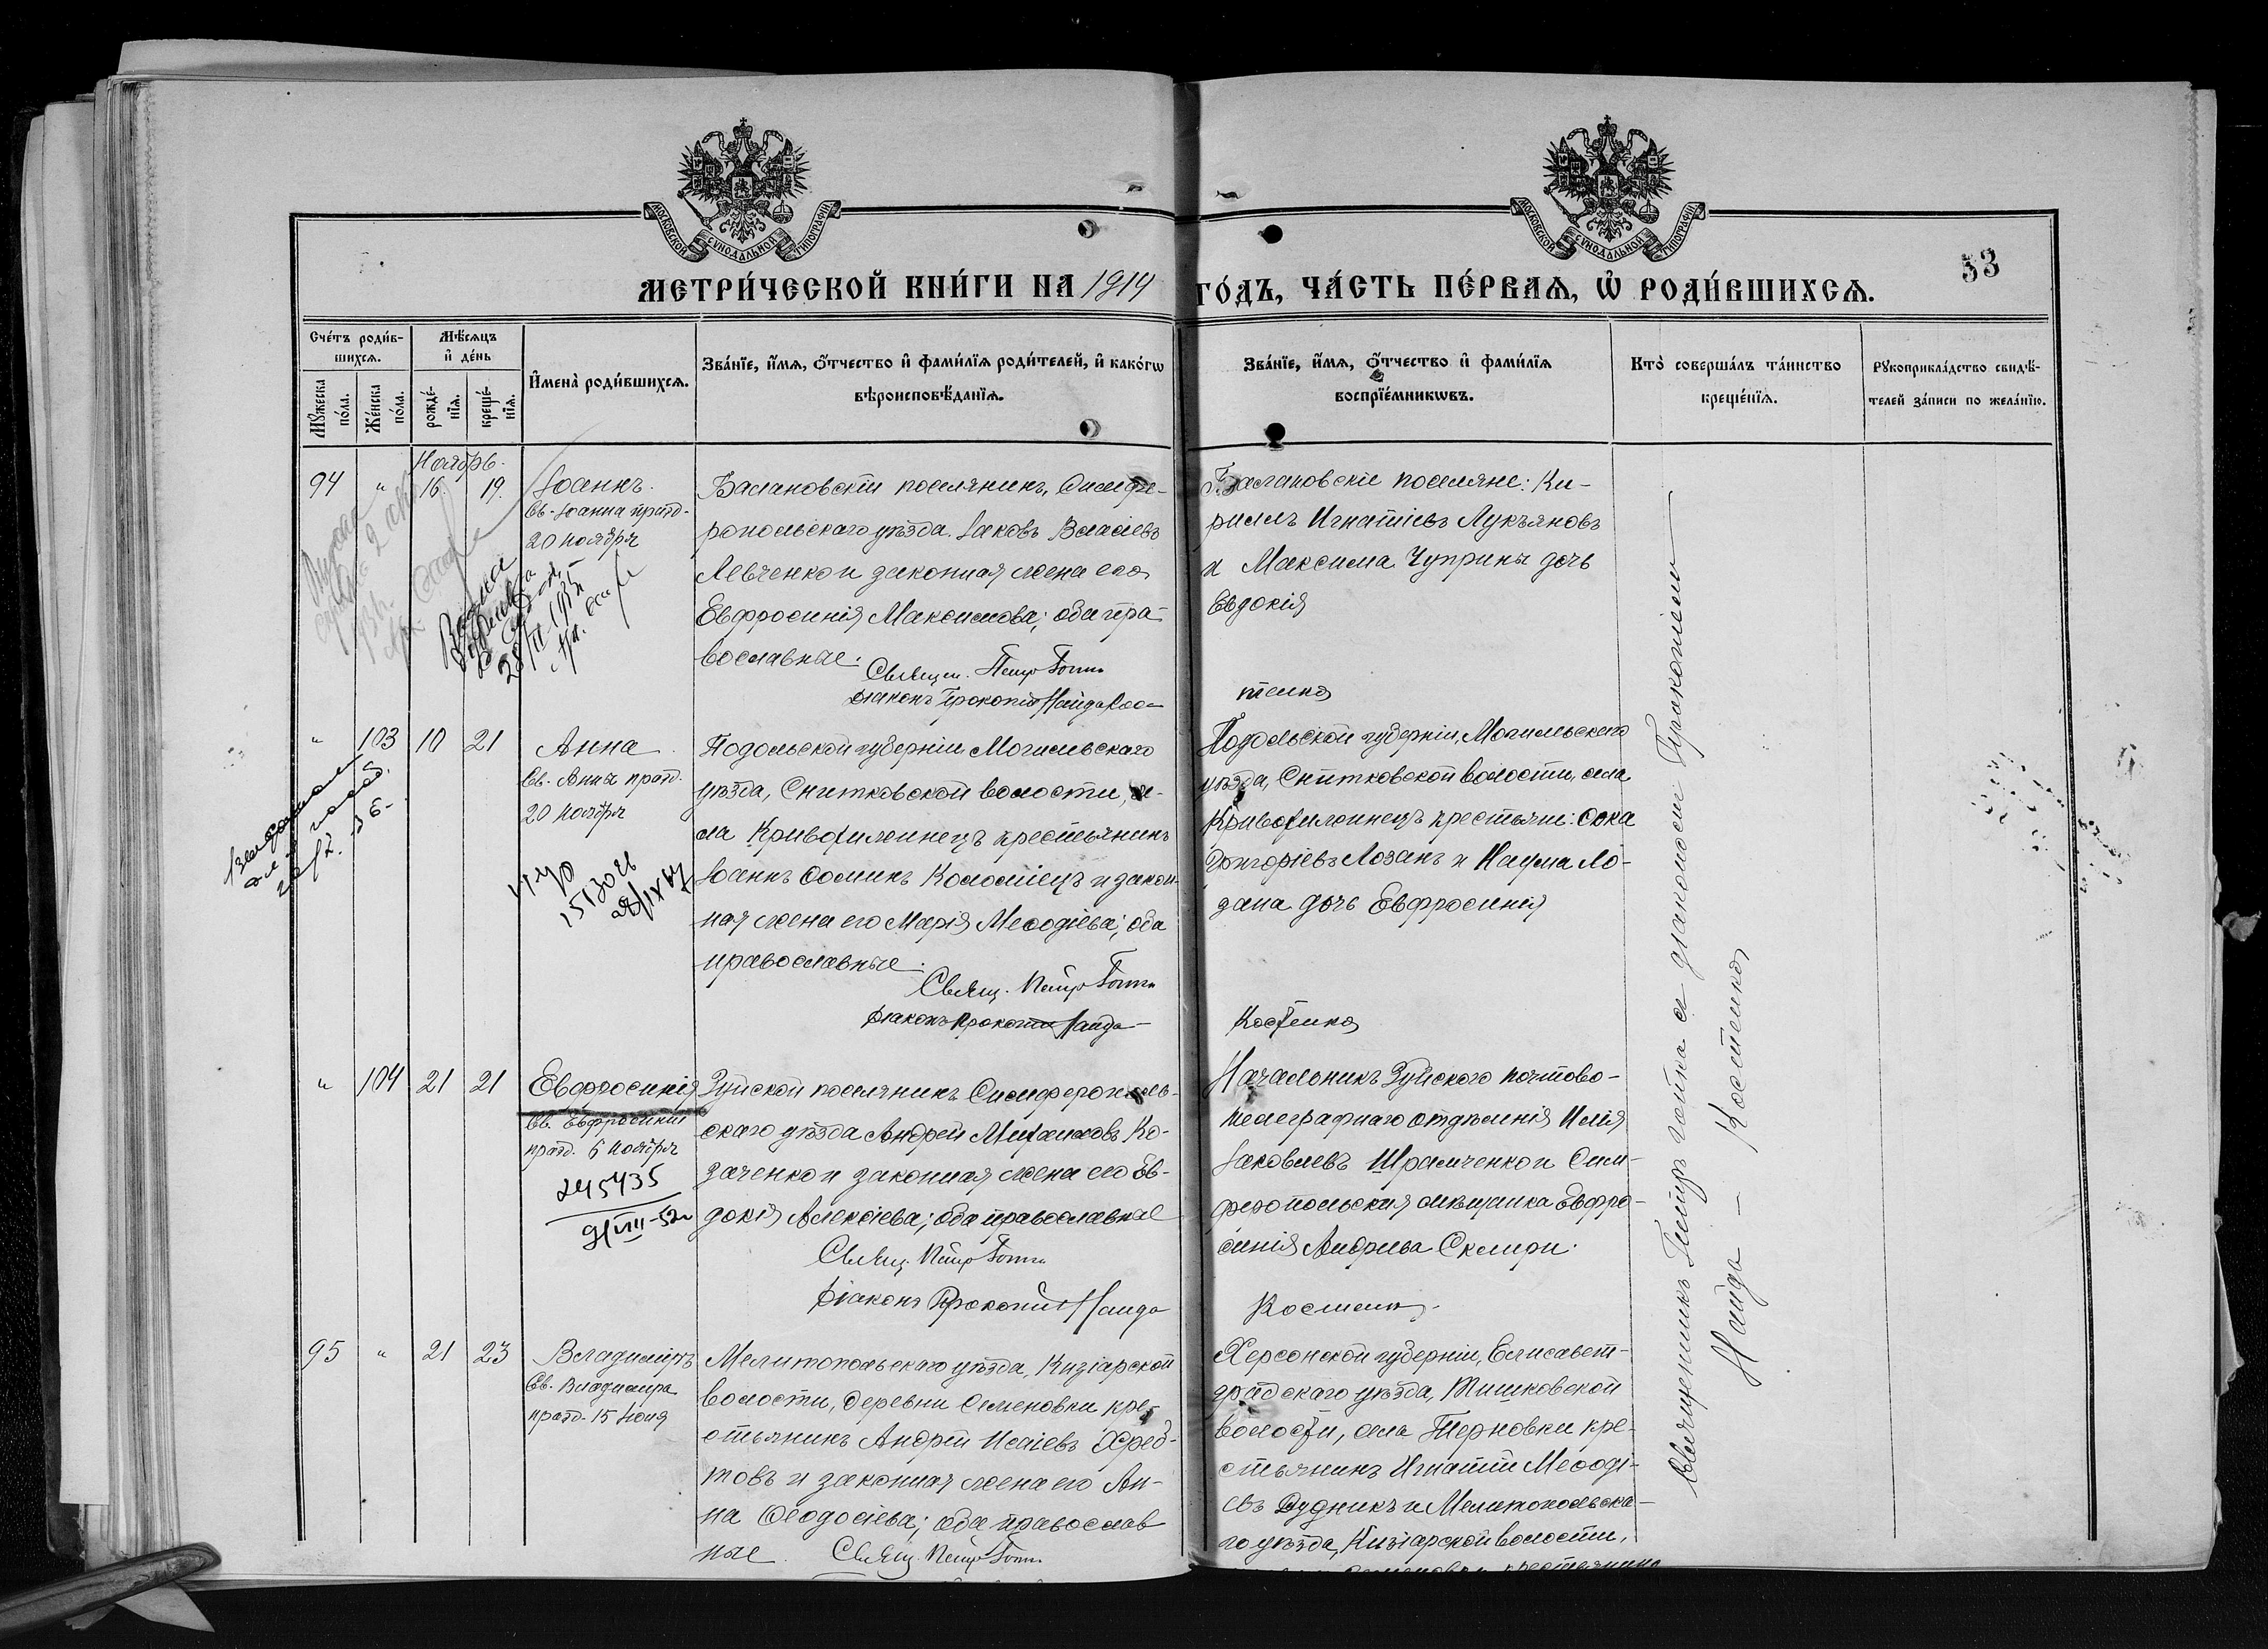 МОСКОВСКОЙ СѴНОДАЛЬНОЙ ТИПОГРАФІИ
МОСКОВСКОЙ СѴНОДАЛЬНОЙ ТИПОГРАФІИ
53
МЕТРИ́ЧЕСКОЙ КНИ́ГИ НА 1914 ГО́ДЪ, ЧА́СТЬ ПЕ́РВАѦ, Ѡ҆ РОДИ́ВШИХСѦ.
Сче́тъ роди́в-
шихсѧ.
Мꙋжеска по́ла.
Же́нска по́ла.
Мѣ́сѧцъ
и҆ де́нь
рожде́-
нїѧ.
креще́-
нїѧ.
И҆мена̀ роди́вшихсѧ.
Зва́нїе, и҆́мѧ, ѻ҆́тчество и҆ фами́лїѧ роди́телей, и҆ како́гѡ
вѣроисповѣ́данїѧ.
Зва́нїе, и҆́мѧ, ѻ҆́тчество и҆ фами́лїѧ
воспрїе́мникѡвъ.
Кто̀ соверша́лъ та́инство
креще́нїѧ.
Рꙋкоприкла́дство свидѣ́-
телей за́писи по жела́нїю.
Ноябрь.
94 " 16. 19.
Іоаннъ.
Св. Іоанна празд.
20 ноября
28/III-1935
Балановскій поселянинъ, Симфе-
ропольскаго уѣзда. Іаковъ Власіевъ
Левченко и законная жена его
Евфросинія Максимова; оба пра-
вославные.
Священ. Петръ
Діаконъ Прокопій Найда Кос-
Балановскіе поселяне: Ки-
риллъ Игнатіевъ Лукъяновъ
и Максима Чуприны дочь
Евдокія
тенко
" 103 10 21
Анна
Св. Анны празд.
20 ноября
Подольской губерніи Могилевскаго
уѣзда, Снитковской волости, се-
ла Кривохижинецъ крестьянинъ
Іоаннъ Ѳоминъ Коломіецъ и закон-
ная жена его Марія Меѳодіева; оба
православные.
Свящ. Петръ
Діаконъ Прокопій Найда-
Подольской губерніи, Могилевскаго
уѣзда, Снитковской волости, села
Кривохижинецъ крестьяне: Ѳока
Григоріевъ Лозанъ и Наума Ло-
зана дочь Евфросинія
Костенко
" 104 21 21
Евфросинія
Св. Евфросиніи
празд. 6 ноября
245435
9/VIII-52
Зуйской поселянинъ Симферополь-
скаго уѣзда Андрей Михайловъ Ко-
заченко и законная жена его Ев-
докія Алексіева; оба православные
Свящ. Петръ
Діаконъ Прокопій Найда
Начальникъ Зуйского почтово-
телеграфнаго отдѣленія Илія
Іаковлевъ Шрамченко и Сим-
феропольская мѣщанка Евфро-
синія Андреева Склири.
Костенко.
95 " 21 23
Владиміръ
Св. Владимира
празд. 15 Іюля
Мелитопольскаго уѣзда, Кизіарской
волости, деревни Семеновки кре-
стьянинъ Андрей Исаіевъ Хреб-
товъ и законная жена его Ан-
на Ѳеодосіева; оба православ
ные. Свящ. Петръ
Херсонской губерніи, Елисавет-
градскаго уѣзда, Тишковской
волости, села Терновки кре-
стьянинъ Игнатій Меѳоді-
евъ Дудникъ и Мелитопольска-
го уѣзда, Кизіарской волости,
Священникъ Петръ съ діакономъ Прокопіемъ
Найда - Костенко